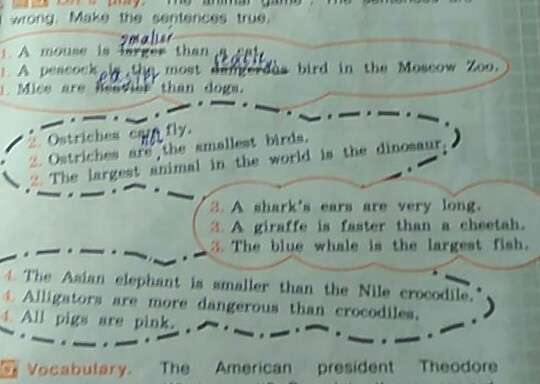 Let's play. "The animal game". The sentences are
wrong. Make the sentences true.
smaller
1. A mouse is larger than a cat.
1. A peacock is the most dangerous bird in the Moscow Zoo.
easier
1. Mice are heavier than dogs.
2. Ostriches can fly.
not
2. Ostriches are the smallest birds.
2. The largest animal in the world is the dinosaur.
3. A shark's ears are very long.
3. A giraffe is faster than a cheetah.
3. The blue whale is the largest fish.
4. The Asian elephant is smaller than the Nile crocodile.
4. Alligators are more dangerous than crocodiles.
4. All pigs are pink.
Vocabulary. The American president Theodore